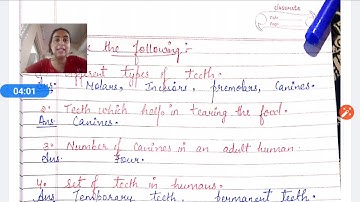 classmate
Date
Page
the following:-
different types of teeth.
Ans: Molars, Incisors, premolars, Canines.
04:01
2. Teeth which helps in tearing the food.
Ans Canines.
3. Number of Canines in an adult human:
Ans: Four.
4. Set of teeth in humans.
Ans Temporary teeth, permanent teeth.